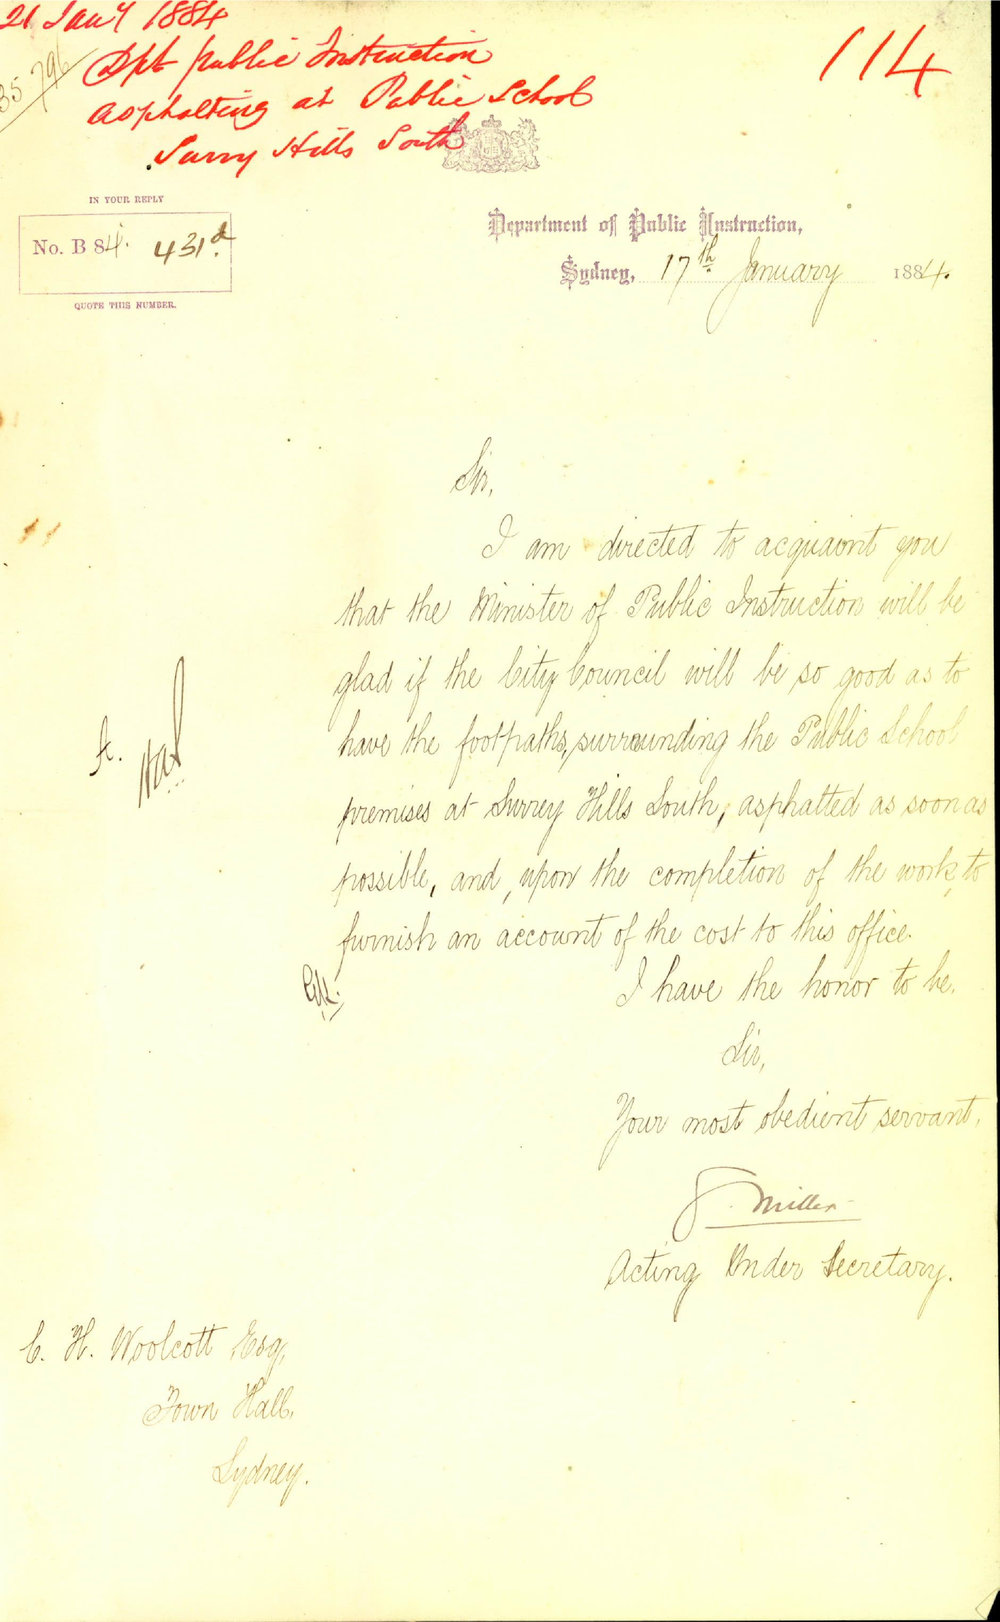 21 Jany 1884
Dpt public Instruction
asphalting at Public School
Surry Hills South
114
35796
IN YOUR REPLY
No. B 84. 431d
QUOTE THIS NUMBER.
Department of Public Instruction,
Sydney, 17th January 1884.
Sir,
I am directed to acquaint you
that the Minister of Public Instruction will be
glad if the City Council will be so good as to
have the footpaths, surrounding the Public School
premises at Surrey Hills South, asphalted as soon as
possible, and, upon the completion of the work, to
furnish an account of the cost to this office.
I have the honor to be,
Sir,
Your most obedient servant,
Miller
Acting Under Secretary.
C. H. Woolcott Esq,
Town Hall,
Sydney.